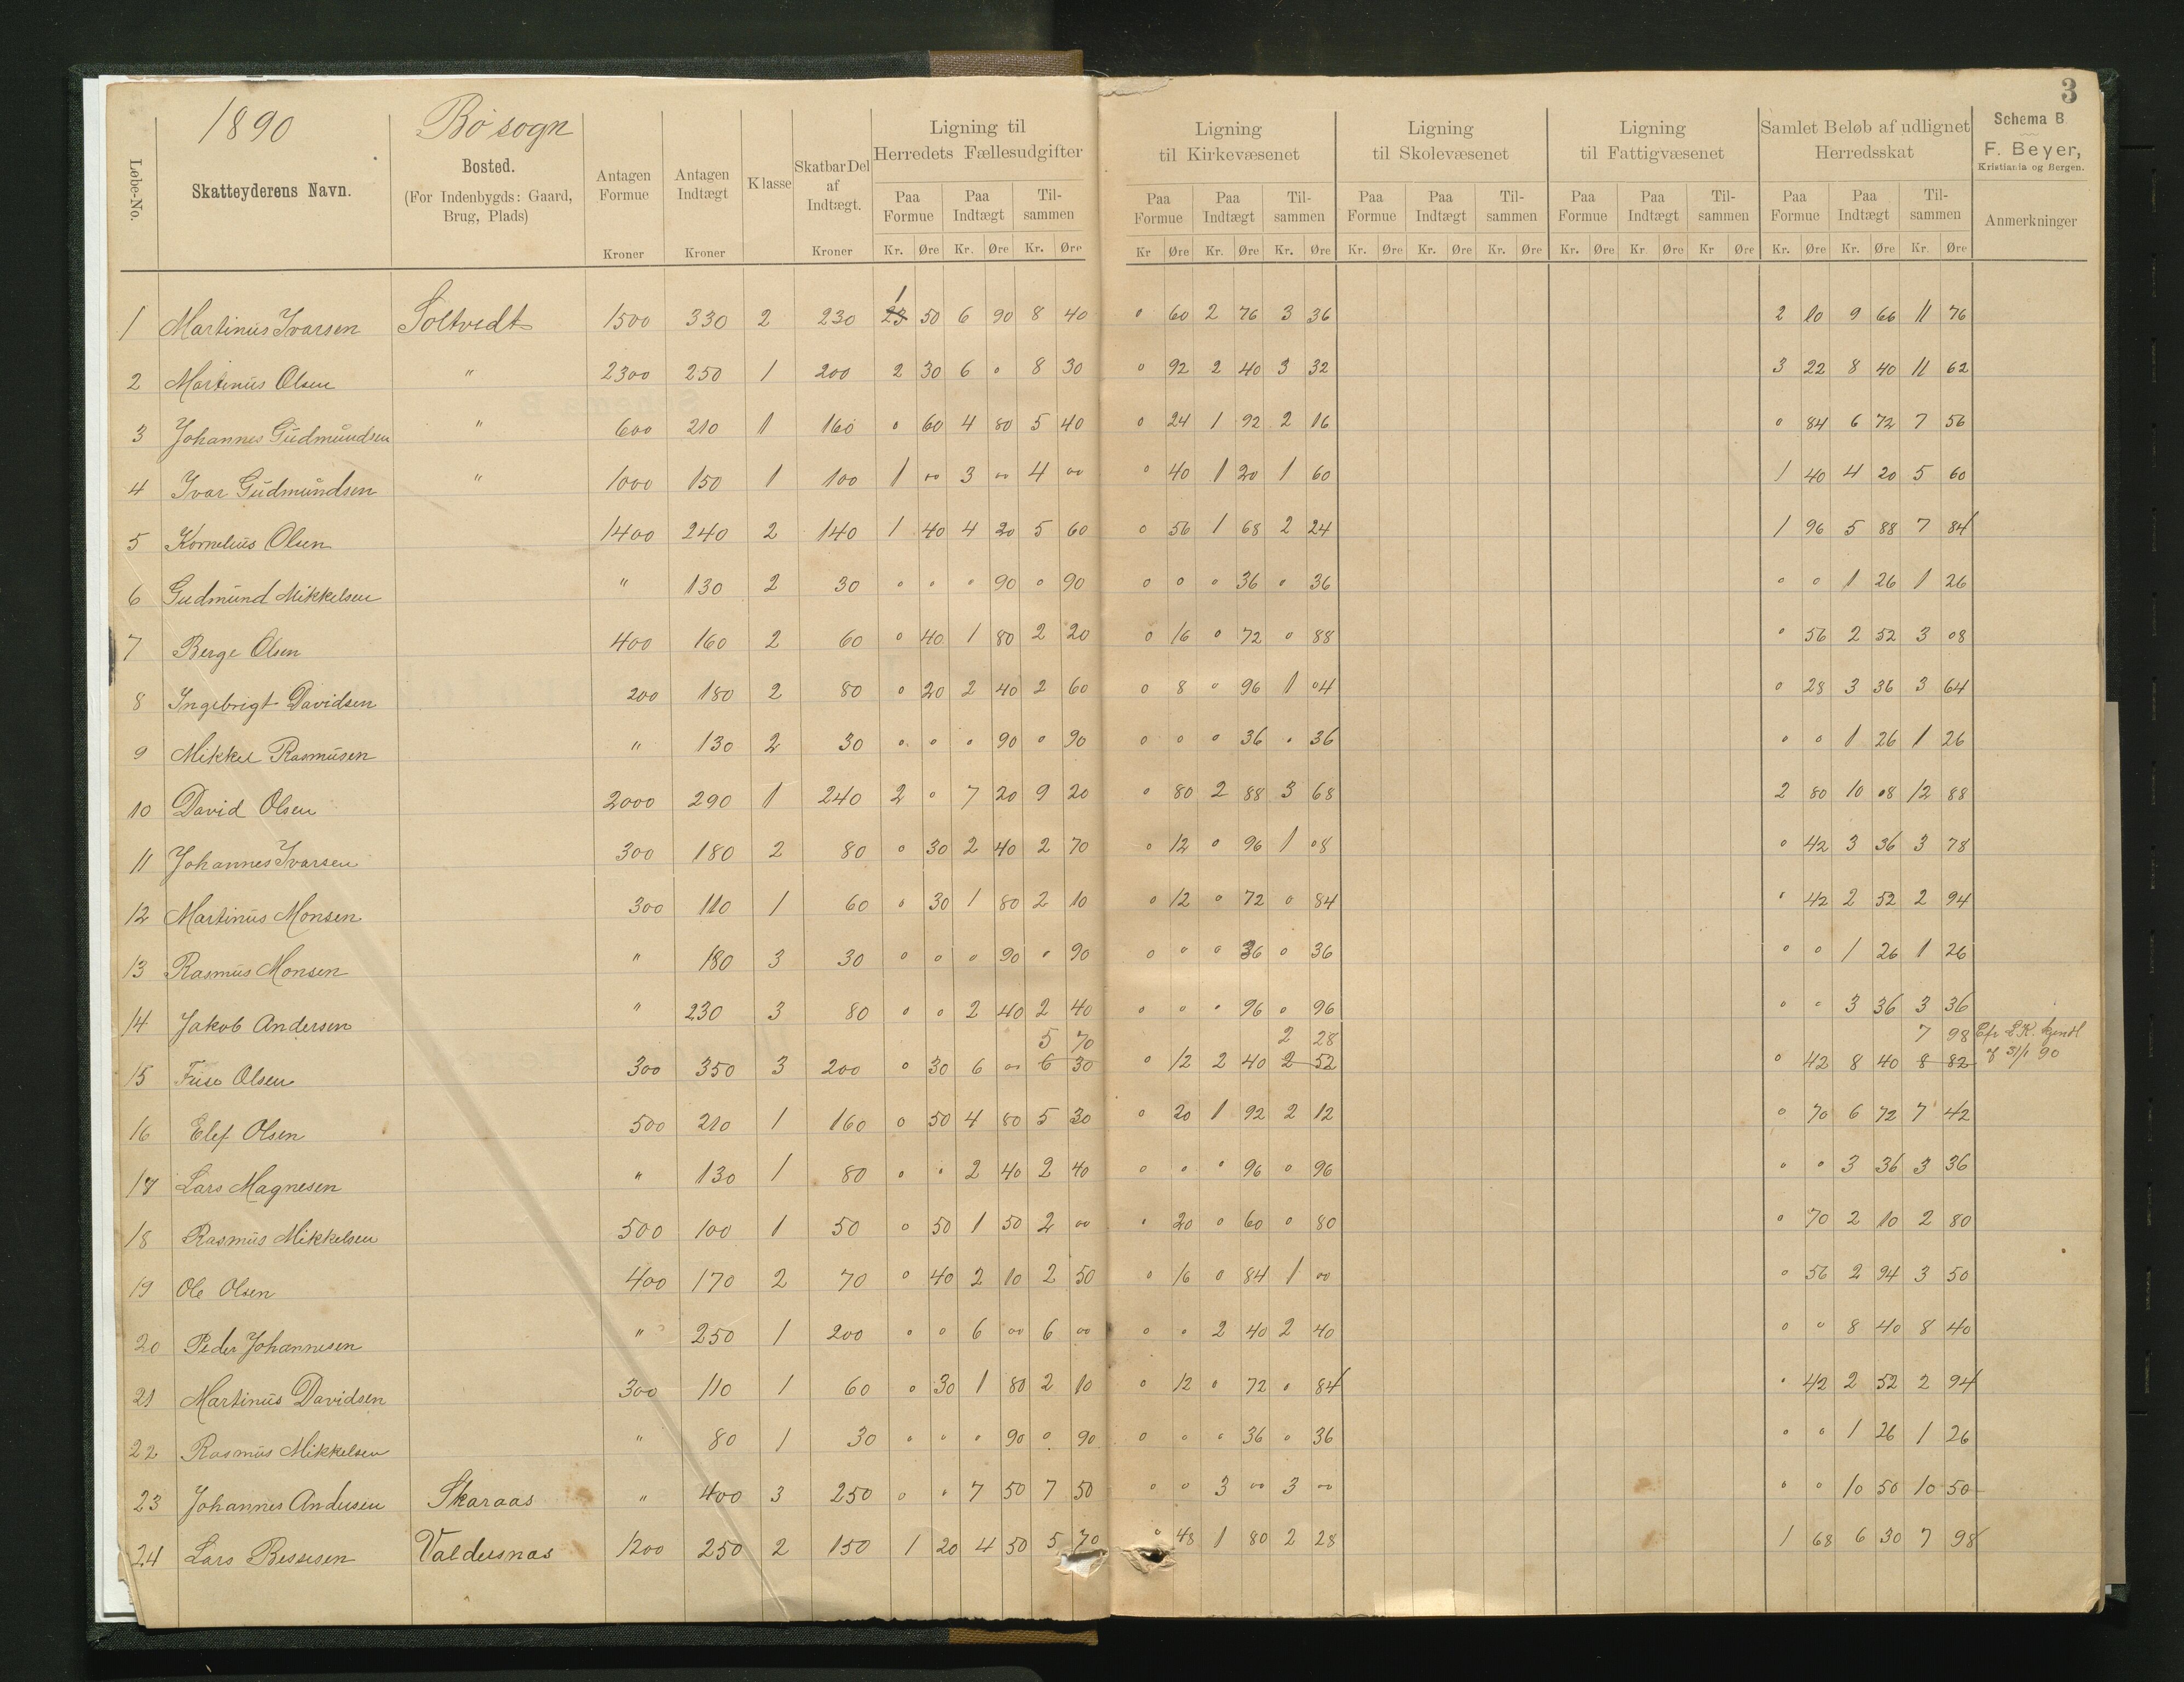 3
1890 Bö sogn
Løbe-No. Skatteyderens Navn. Bosted. (For Indenbygds: Gaard, Brug, Plads) Antagen Formue Kroner Antagen Indtægt Kroner Klasse Skatbar Del af Indtægt. Kroner
Ligning til Herredets Fællesudgifter Paa Formue Kr. Øre Paa Indtægt Kr. Øre Tilsammen Kr. Øre
Ligning til Kirkevæsenet Paa Formue Kr Øre Paa Indtægt Kr. Øre Tilsammen Kr. Øre
Ligning til Skolevæsenet Paa Formue Kr. Øre Paa Indtægt Kr. Øre Tilsammen Kr. Øre
Ligning til Fattigvæsenet Paa Formue Kr. Øre Paa Indtægt Kr Øre Tilsammen Kr Øre
Samlet Beløb af udlignet Herredsskat Paa Formue Kr. Øre Paa Indtægt Kr. Øre Tilsammen Kr. Øre
Schema B
F. Beyer,
Kristiania og Bergen.
Anmerkninger
1 Martinus Ivarsen Soltvedt 1500 330 2 230 1 50 6 90 8 40 0 60 2 76 3 36 2 10 9 66 11 76
2 Martinus Olsen " 2300 250 1 200 2 30 6 0 8 30 0 92 2 40 3 32 3 22 8 40 11 62
3 Johannes Gudmundsen " 600 210 1 160 0 60 4 80 5 40 0 24 1 92 2 16 0 84 6 72 7 56
4 Ivar Gudmundsen " 1000 150 1 100 1 00 3 00 4 00 0 40 1 20 1 60 1 40 4 20 5 60
5 Kornelius Olsen 1400 240 2 140 1 40 4 20 5 60 0 56 1 68 2 24 1 96 5 88 7 84
6 Gudmund Mikkelsen " 130 2 30 0 0 0 90 0 90 0 0 0 36 0 36 0 0 1 26 1 26
7 Berge Olsen 400 160 2 60 0 40 1 80 2 20 0 16 0 72 0 88 0 56 2 52 3 08
8 Ingebrigt Davidsen 200 180 2 80 0 20 2 40 2 60 0 8 0 96 1 04 0 28 3 36 3 64
9 Mikkel Rasmusen " 130 2 30 0 0 0 90 0 90 0 0 0 36 0 36 0 0 1 26 1 26
10 David Olsen 2000 290 1 240 2 0 7 20 9 20 0 80 2 88 3 68 2 80 10 08 12 88
11 Johannes Ivarsen 300 180 2 80 0 30 2 40 2 70 0 12 0 96 1 08 0 42 3 36 3 78
12 Martinus Monsen 300 110 1 60 0 30 1 80 2 10 0 12 0 72 0 84 0 42 2 52 2 94
13 Rasmus Monsen " 180 3 30 0 0 0 90 0 90 0 0 0 36 0 36 0 0 1 26 1 26
14 Jakob Andersen " 230 3 80 0 0 2 40 2 40 0 0 0 96 0 96 0 0 3 36 3 36
5 70 2 28 7 98 Efr
15 Olsen 300 350 3 200 0 30 6 00 6 30 0 12 2 40 2 52 0 42 8 40 8 82 af 31/1 90
16 Elef Olsen 500 210 1 160 0 50 4 80 5 30 0 20 1 92 2 12 0 70 6 72 7 42
17 Lars Magnesen " 130 1 80 0 0 2 40 2 40 0 0 0 96 0 96 0 0 3 36 3 36
18 Rasmus Mikkelsen 500 100 1 50 0 50 1 50 2 00 0 20 0 60 0 80 0 70 2 10 2 80
19 Ole Olsen 400 170 2 70 0 40 2 10 2 50 0 16 0 84 1 00 0 56 2 94 3 50
20 Peder Johannesen " 250 1 200 0 0 6 00 6 00 0 0 2 40 2 40 0 0 8 40 8 40
21 Martinus Davidsen 300 110 1 60 0 30 1 80 2 10 0 12 0 72 0 84 0 42 2 52 2 94
22 Rasmus Mikkelsen " 80 1 30 0 0 0 90 0 90 0 0 0 36 0 36 0 0 1 26 1 26
23 Johannes Andersen Skaraas " 400 3 250 0 0 7 50 7 50 0 0 3 00 3 00 0 0 10 50 10 50
24 Lars Bessesen Valdersnas 1200 250 2 150 1 20 4 50 5 70 0 48 1 80 2 28 1 68 6 30 7 98